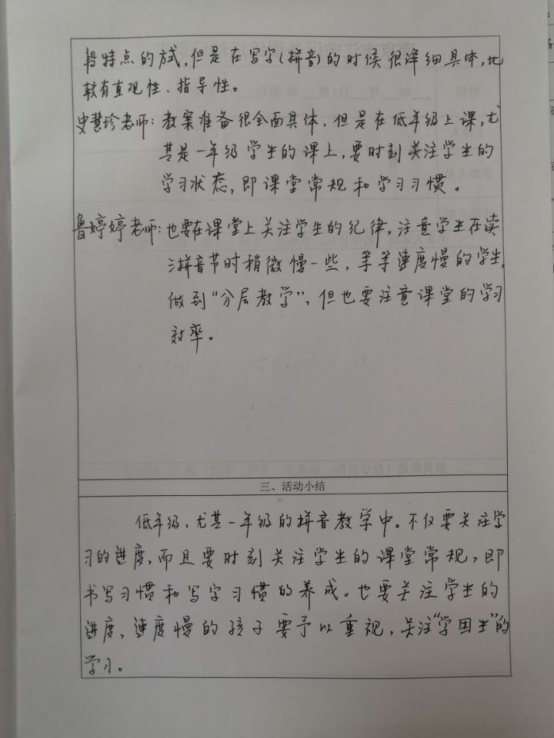 段特点的方式，但是在写字(拼音)的时候很详细具体，比
较有直观性、指导性。
史慧珍老师：教案准备很全面具体，但是在低年级上课，尤
其是一年级学生的课上，要时刻关注学生的
学习状态，即课堂常规和学习习惯。
鲁婷婷老师：也要在课堂上关注学生的纪律，注意学生在读
拼音节时稍微慢一些，等等速度慢的学生，
做到“分层教学”，但也要注意课堂的学习
效率。
三、活动小结
低年级，尤其一年级的拼音教学中。不仅要关注学
习的进度，而且要时刻关注学生的课堂常规，即
书写习惯和写字习惯的养成。也要关注学生的
进度，速度慢的孩子要予以重视，关注“学困生”的
学习。